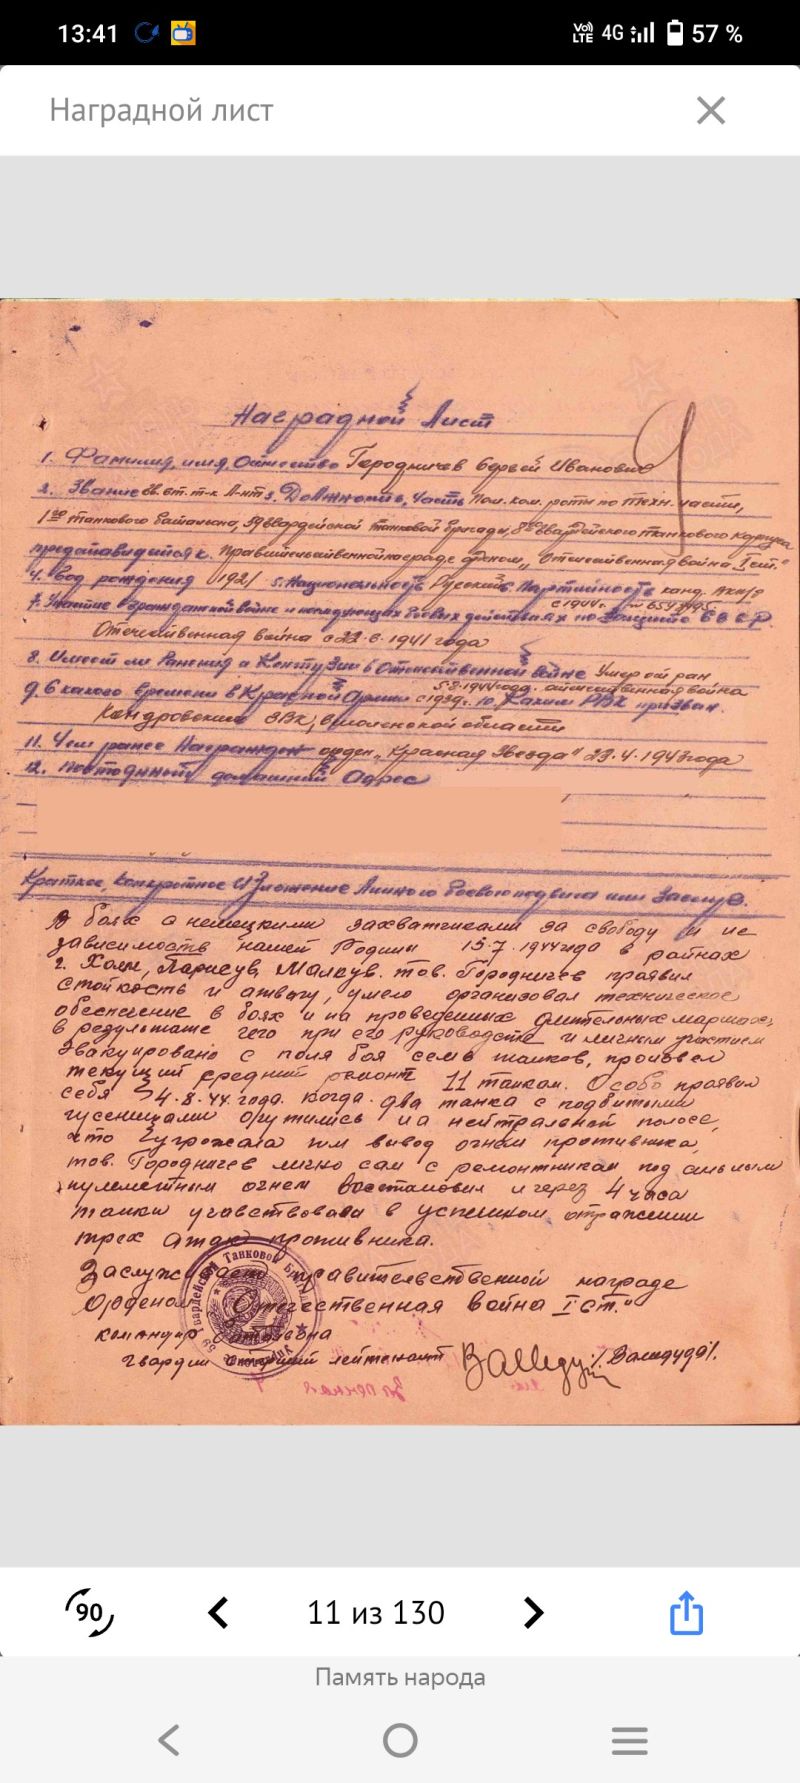 13:41
Vo) LTE 4G 57 %
Наградной лист
Наградной Лист
1. Фамилия, имя, отчество Городничев Сергей Иванович
2. Звание Гв. вт. т-к л-нт 3. Должность, часть Пом. ком. роты по техн. части,
1го танкового батальона, 59 гвардейской танковой бригады, 8го гвардейского танкового корпуса
представляется к правительственной награде орденом „Отечественная война I ст."
4. Год рождения 1921 5. Национальность Русский 6. Партийность канд. ВКП/б
с 1944г. № 6593495.
7. Участие в гражданской войне и последующих боевых действиях по защите СССР
Отечественная война с 22.6.1941 года
8. Имеет ли Ранения и Контузии в Отечественной войне Умер от ран
5.8.1944 года. отечественная война
9. С какого времени в Красной Армии с 1939г. 10. Каким РВК призван.
Кондровским РВК, Смоленской области
11. Чем ранее Награжден орден „Красная Звезда" 23.4.1943 года
12. Постоянный домашний Адрес
Краткое, конкретное Изложение Личного боевого подвига или Заслуг.
В боях с немецкими захватчиками за свободу и не
зависимость нашей Родины 15.7.1944 года в районах
г. Холм, Парисув, Малкув. тов. Городничев проявил
стойкость и отвагу, умело организовал техническое
обеспечение в боях и на проведенных длительных маршах,
в результате чего при его руководстве и личным участием
эвакуировано с поля боя семь танков, произвел
текущий средний ремонт 11 танкам. Особо проявил
себя 4.8.44 года. когда два танка с подбитыми
гусеницами очутились на нейтральной полосе,
что угрожало им вывод огнем противника,
тов. Городничев лично сам с ремонтникам под сильным
пулеметным огнем восстановил и через 4 часа
танки учавствовали в успешном отражении
трех атак противника.
Заслуживает правительственной награде
Орденом „Отечественная война I ст."
командир батальона
гвардии старший лейтенант /Валедуда/.
Гвардейская Танковая Бригада
11 из 130
90
Память народа